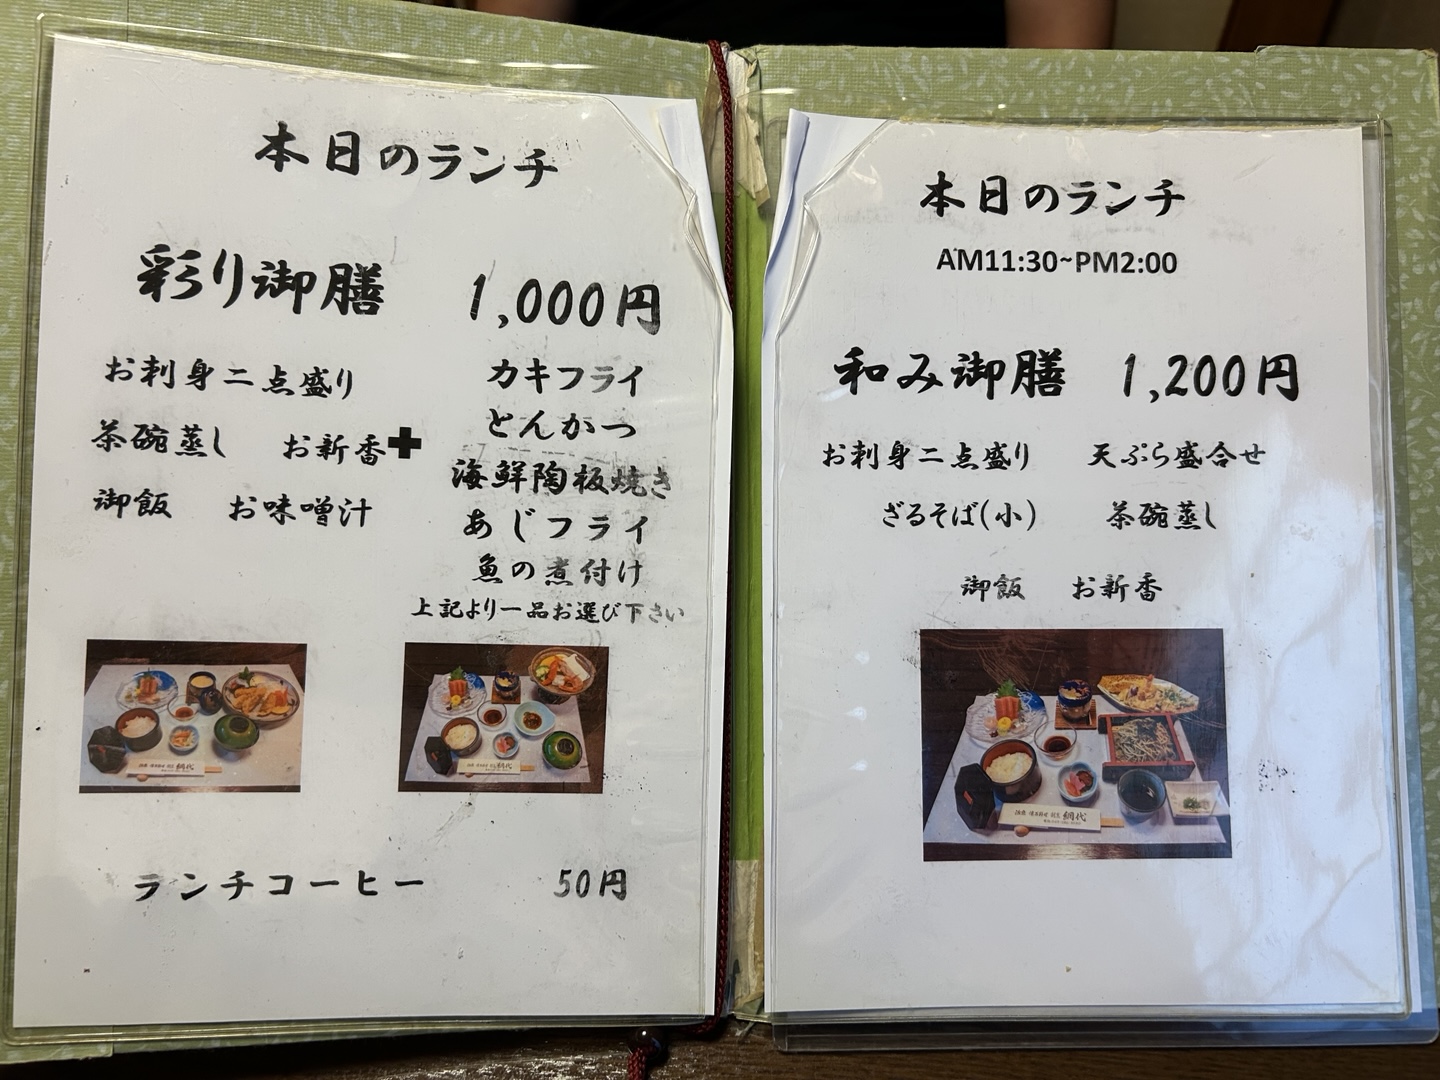 本日のランチ
彩り御膳 1,000円
お刺身二点盛り
茶碗蒸し お新香
御飯 お味噌汁
+
カキフライ
とんかつ
海鮮陶板焼き
あじフライ
魚の煮付け
上記より一品お選び下さい
網代
網代
ランチコーヒー 50円
本日のランチ
AM11:30~PM2:00
和み御膳 1,200円
お刺身二点盛り 天ぷら盛合せ
ざるそば(小) 茶碗蒸し
御飯 お新香
網代